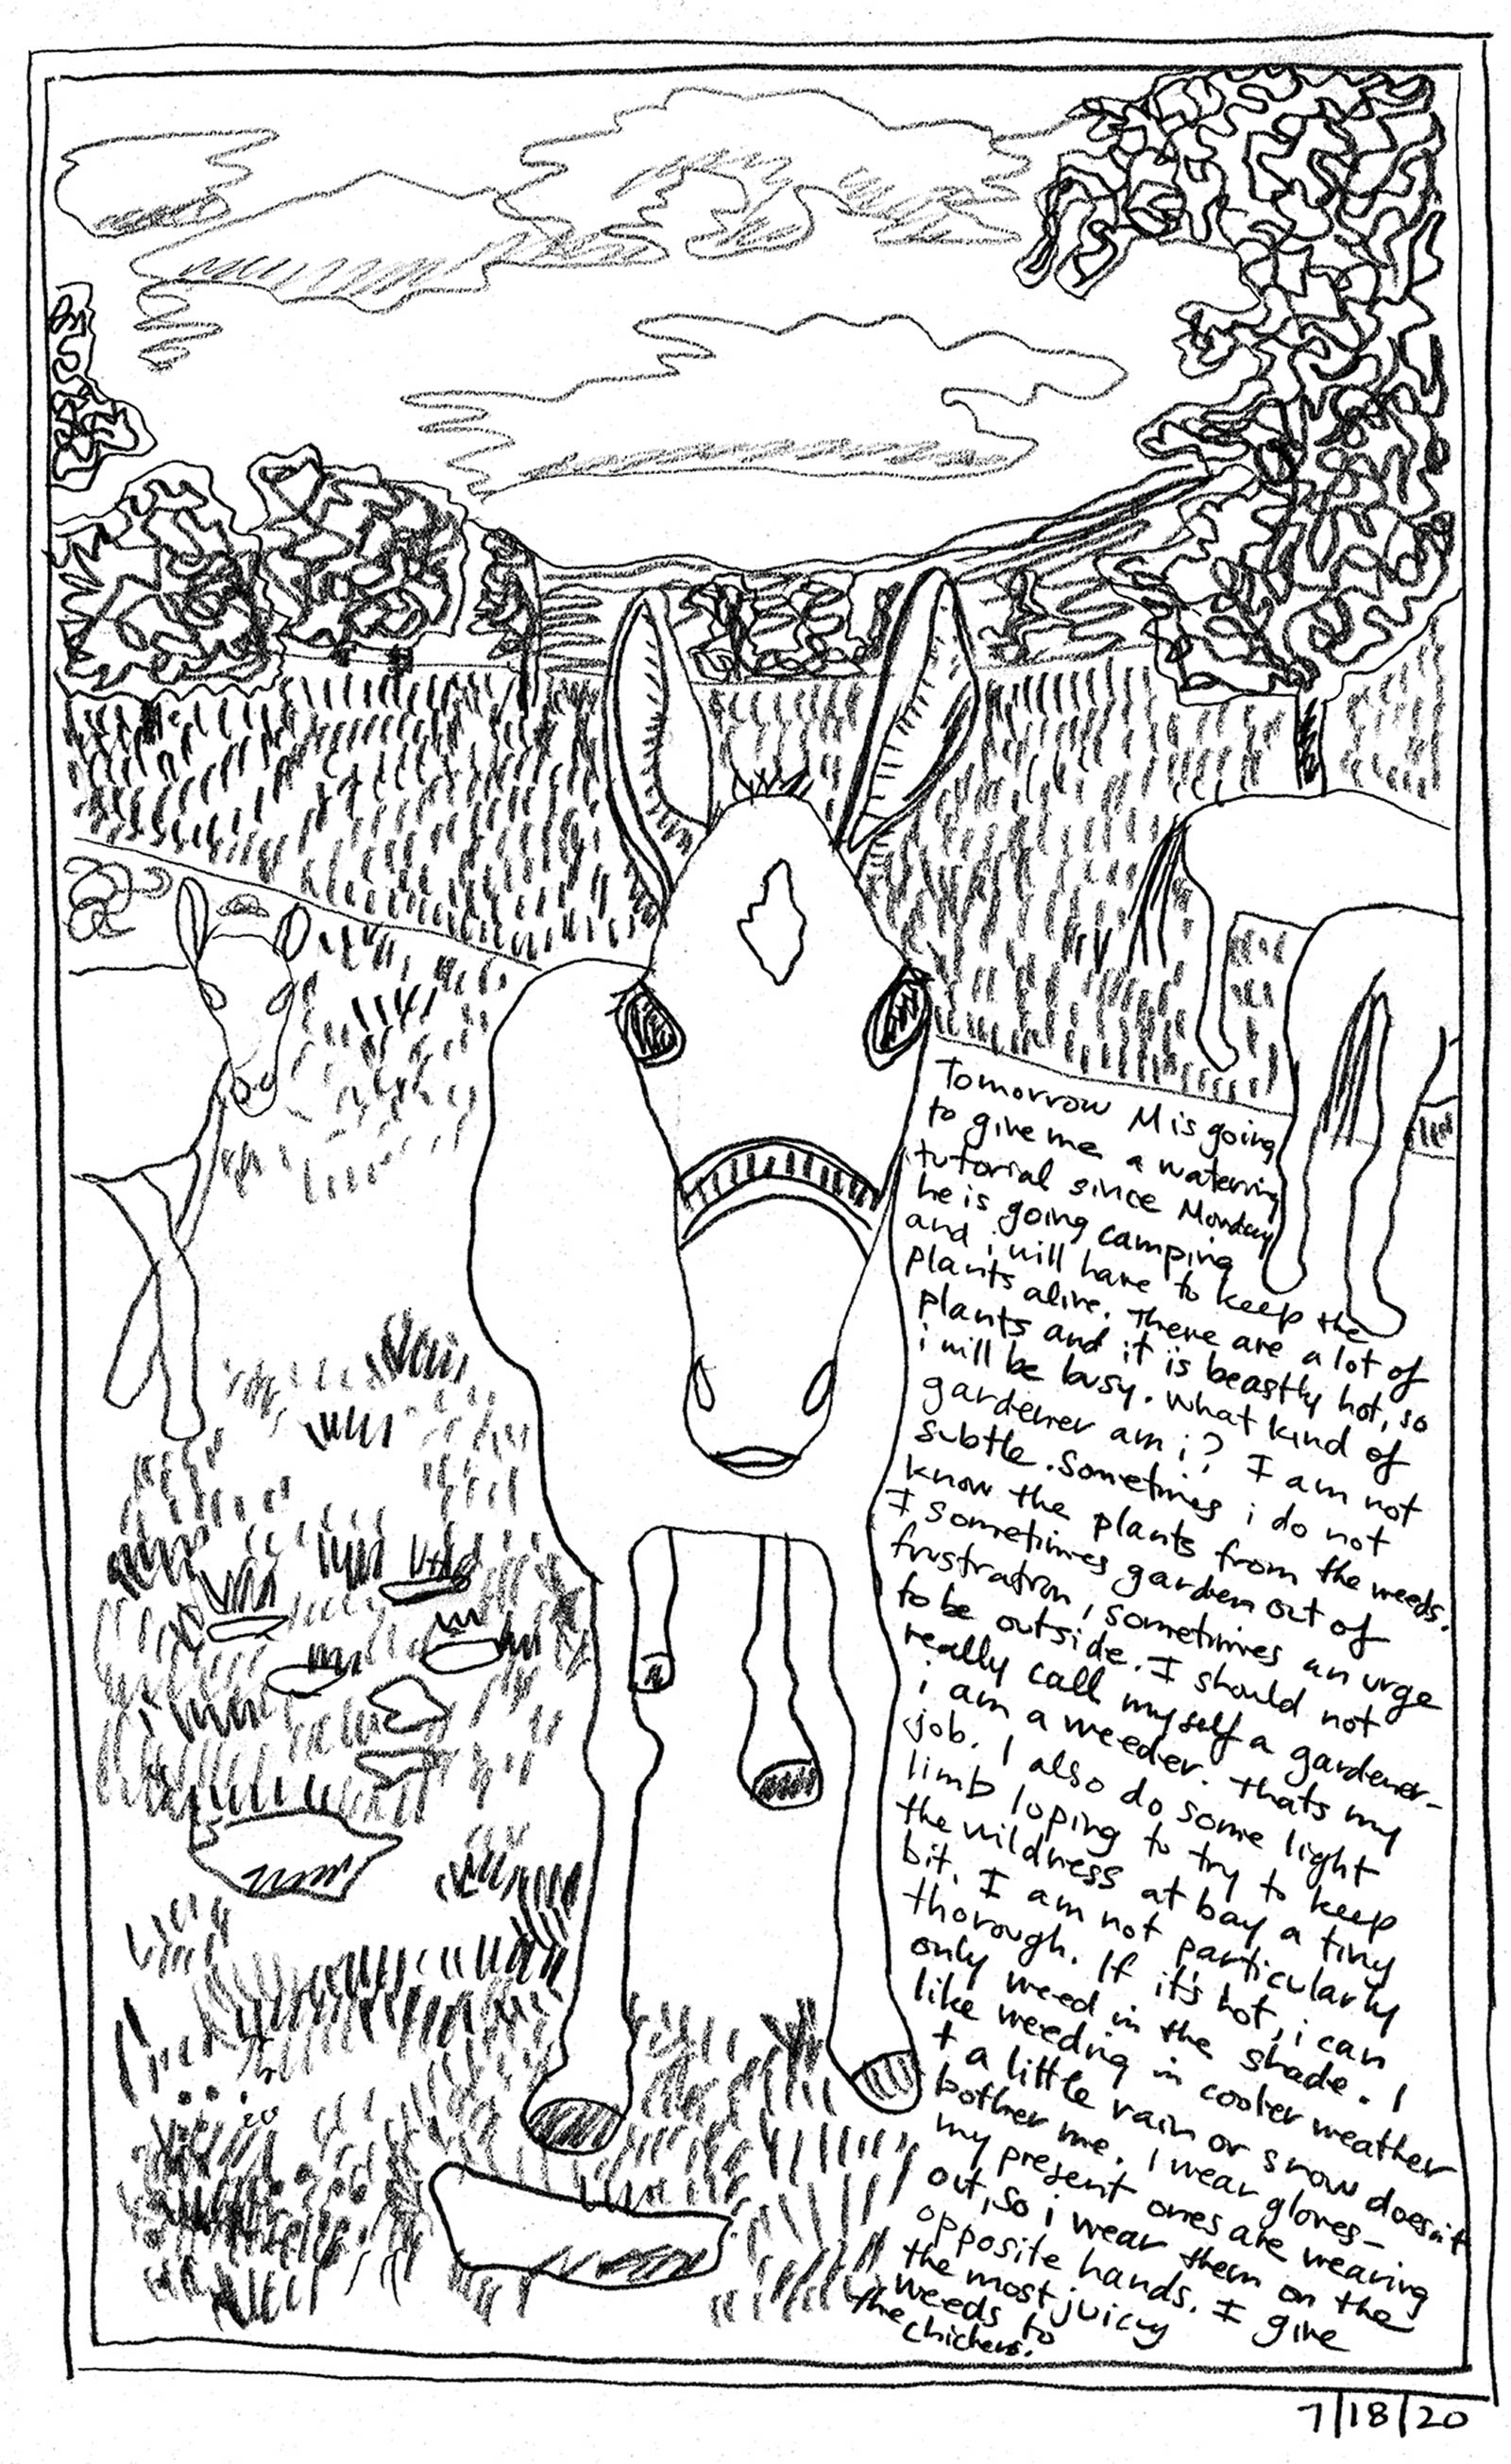 Tomorrow M is going
to give me a watering
tutorial since Monday
he is going camping
and i will have to keep the
plants alive. There are a lot of
plants and it is beastly hot, so
i will be busy. What kind of
gardener am i? I am not
subtle. Sometimes i do not
know the plants from the weeds.
I sometimes garden out of
frustration, sometimes an urge
to be outside. I should not
really call myself a gardener-
i am a weeder. thats my
job. I also do some light
limb loping to try to keep
the wildness at bay a tiny
bit. I am not particularly
thorough. If it's hot, i can
only weed in the shade. I
like weeding in cooler weather
+ a little rain or snow doesn't
bother me. I wear gloves-
my present ones are wearing
out, so i wear them on the
opposite hands. I give
the most juicy
weeds to
the chickens.
7/18/20